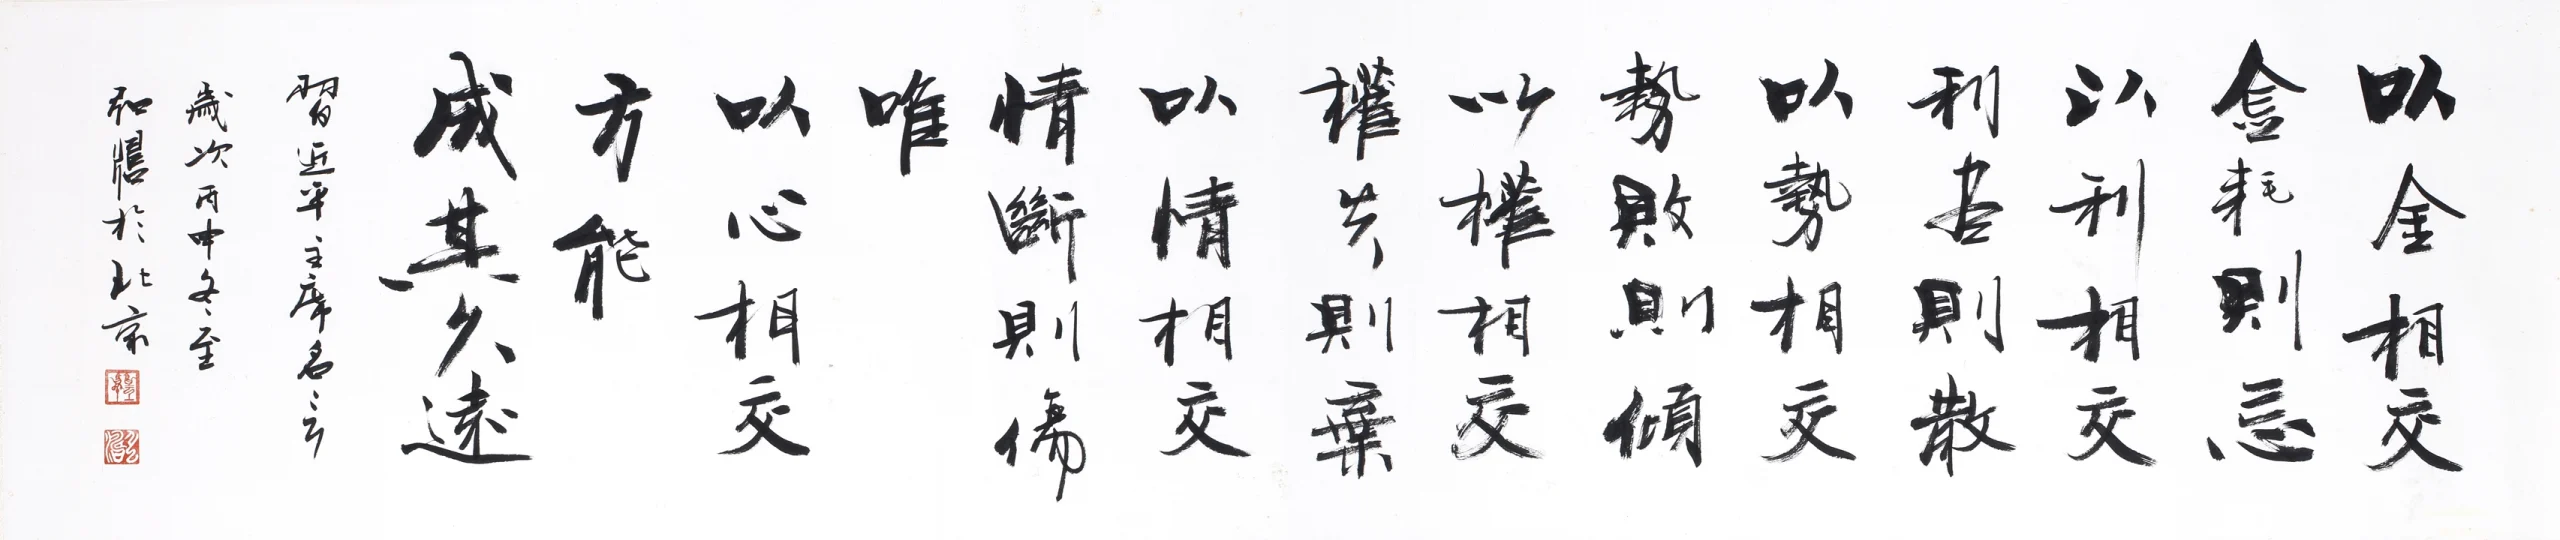 以金相交
金耗則忘
以利相交
利盡則散
以勢相交
勢敗則傾
以權相交
權失則棄
以情相交
情斷則傷
唯
以心相交
方能
成其久遠
習近平主席名言
歲次丙申冬至
於北京